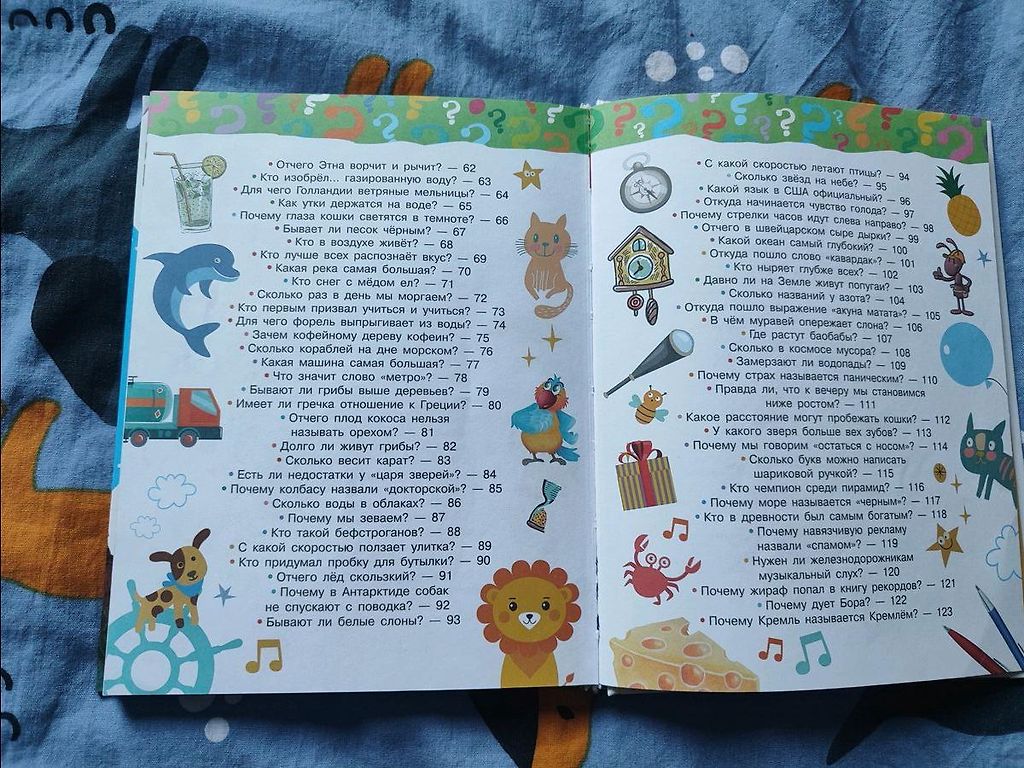 • Отчего Этна ворчит и рычит? — 62
• Кто изобрёл... газированную воду? — 63
• Для чего Голландии ветряные мельницы? — 64
• Как утки держатся на воде? — 65
• Почему глаза кошки светятся в темноте? — 66
• Бывает ли песок чёрным? — 67
• Кто в воздухе живёт? — 68
• Кто лучше всех распознаёт вкус? — 69
• Какая река самая большая? — 70
• Кто снег с мёдом ел? — 71
• Сколько раз в день мы моргаем? — 72
• Кто первым призвал учиться и учиться? — 73
• Для чего форель выпрыгивает из воды? — 74
• Зачем кофейному дереву кофеин? — 75
• Сколько кораблей на дне морском? — 76
• Какая машина самая большая? — 77
• Что значит слово «метро»? — 78
• Бывают ли грибы выше деревьев? — 79
• Имеет ли гречка отношение к Греции? — 80
• Отчего плод кокоса нельзя
называть орехом? — 81
• Долго ли живут грибы? — 82
• Сколько весит карат? — 83
• Есть ли недостатки у «царя зверей»? — 84
• Почему колбасу назвали «докторской»? — 85
• Сколько воды в облаках? — 86
• Почему мы зеваем? — 87
• Кто такой бефстроганов? — 88
• С какой скоростью ползает улитка? — 89
• Кто придумал пробку для бутылки? — 90
• Отчего лёд скользкий? — 91
• Почему в Антарктиде собак
не спускают с поводка? — 92
• Бывают ли белые слоны? — 93
• С какой скоростью летают птицы? — 94
• Сколько звёзд на небе? — 95
• Какой язык в США официальный? — 96
• Откуда начинается чувство голода? — 97
• Почему стрелки часов идут слева направо? — 98
• Отчего в швейцарском сыре дырки? — 99
• Какой океан самый глубокий? — 100
• Откуда пошло слово «кавардак»? — 101
• Кто ныряет глубже всех? — 102
• Давно ли на Земле живут попугаи? — 103
• Сколько названий у азота? — 104
• Откуда пошло выражение «акуна матата»? — 105
• В чём муравей опережает слона? — 106
• Где растут баобабы? — 107
• Сколько в космосе мусора? — 108
• Замерзают ли водопады? — 109
• Почему страх называется паническим? — 110
• Правда ли, что к вечеру мы становимся
ниже ростом? — 111
• Какое расстояние могут пробежать кошки? — 112
• У какого зверя больше всех зубов? — 113
• Почему мы говорим «остаться с носом»? — 114
• Сколько букв можно написать
шариковой ручкой? — 115
• Кто чемпион среди пирамид? — 116
• Почему море называется «черным»? — 117
• Кто в древности был самым богатым? — 118
• Почему навязчивую рекламу
назвали «спамом»? — 119
• Нужен ли железнодорожникам
музыкальный слух? — 120
• Почему жираф попал в книгу рекордов? — 121
• Почему дует Бора? — 122
• Почему Кремль называется Кремлём? — 123